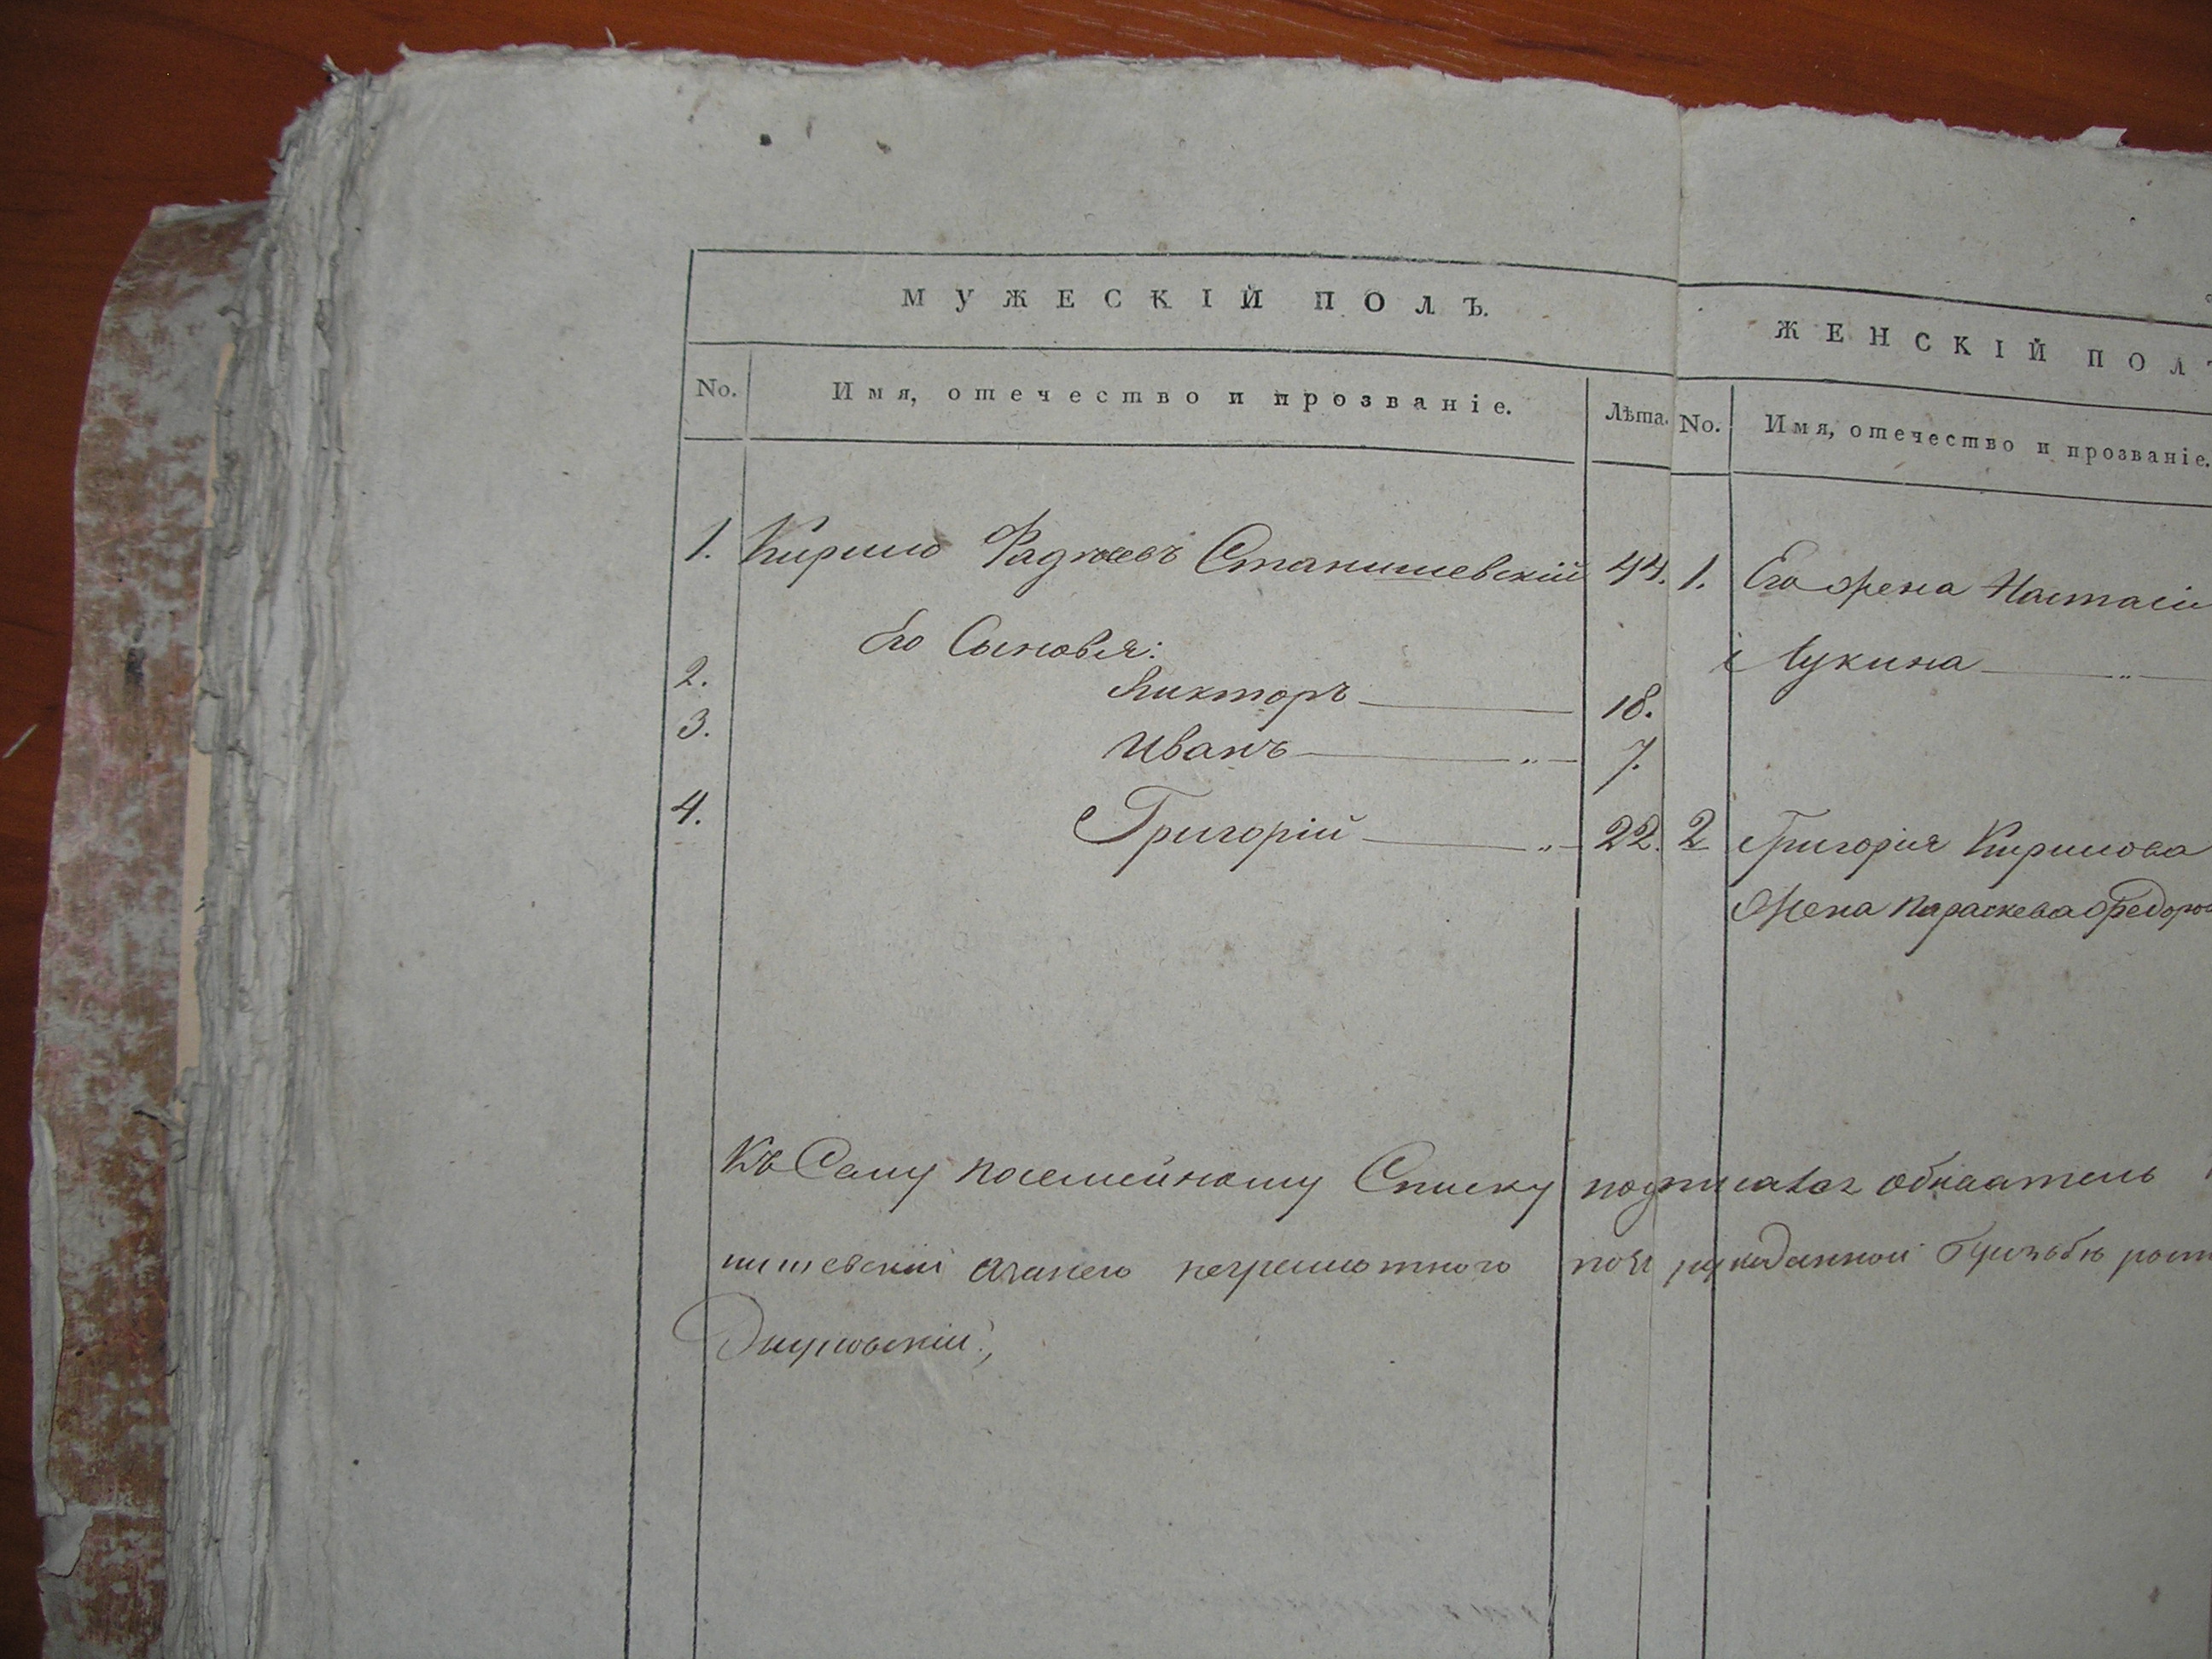 МУЖЕСКІЙ ПОЛЪ.
No. Имя, отечество и прозваніе. Лѣта.
1. Кирило Фадѣевъ Станишевскій 44.
Его Сыновья:
2. Викторъ 18.
3. Иванъ 7.
4. Григорій 22.
ЖЕНСКІЙ ПОЛ
No. Имя, отечество и прозваніе.
1. Его жена Настасія
Лукина
2 Григорія Кирилова
жена Параскева Федоров
Къ Сему посемейному Списку
нишевскій а за него неграмотного по его рукоданной прозьбѣ